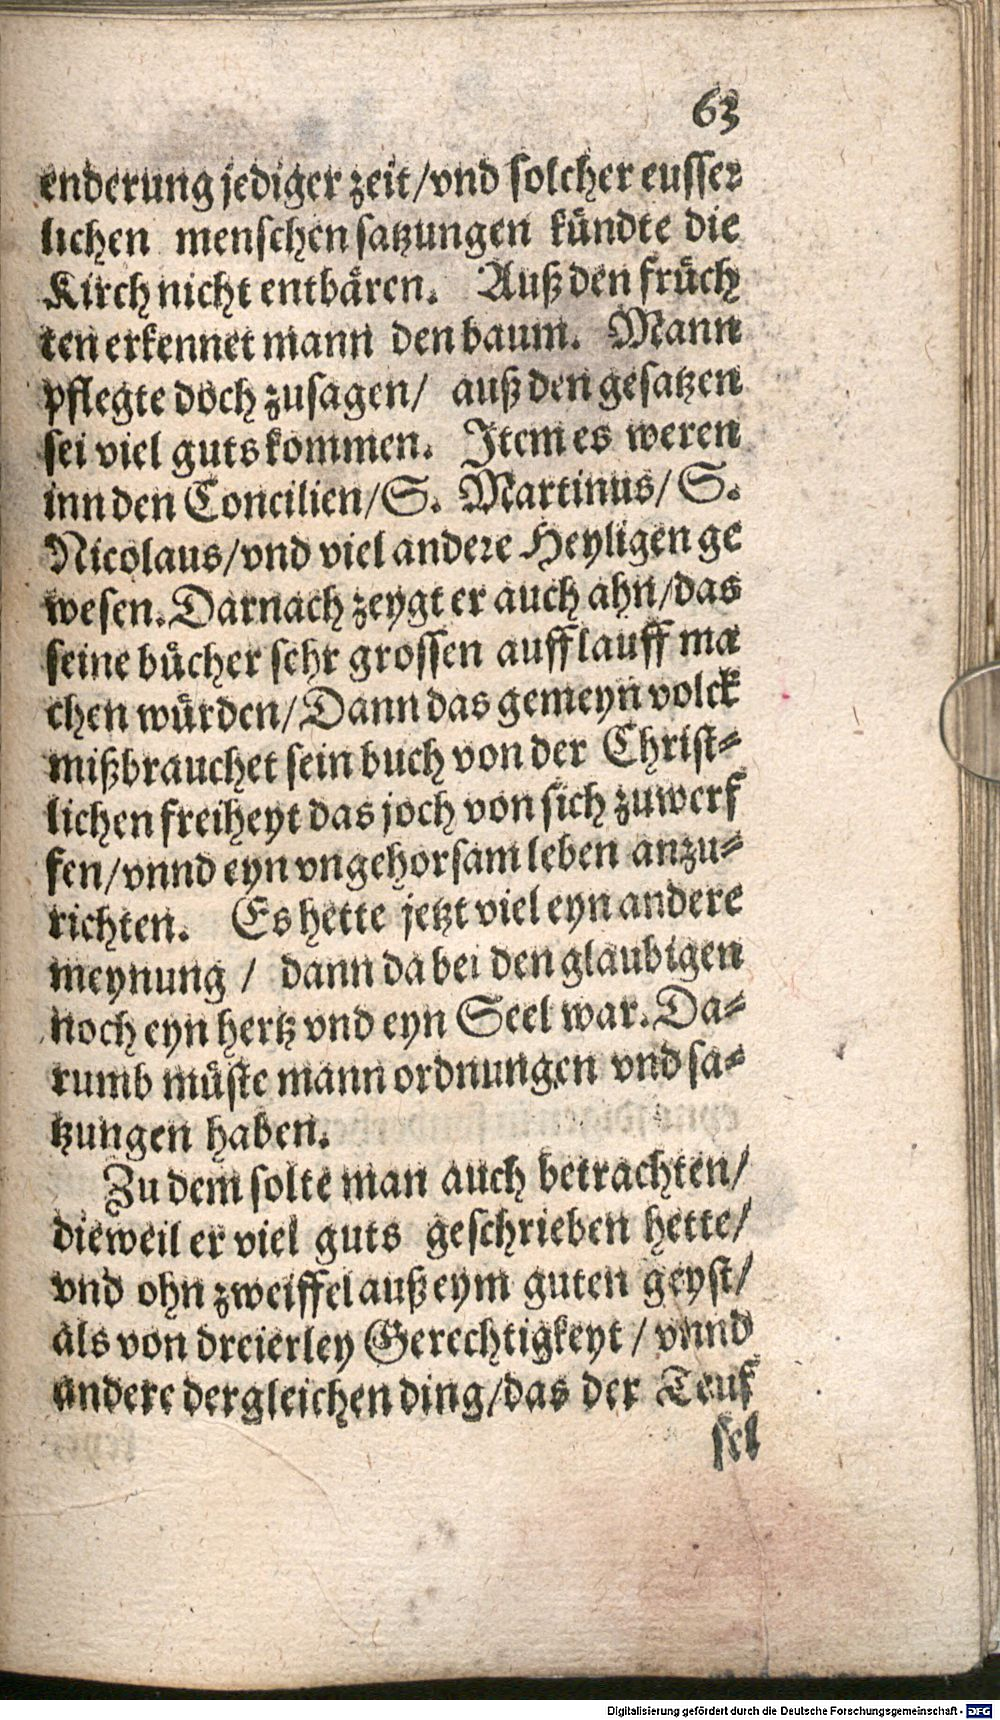 63
enderung jediger zeit/vnd solcher eusser
lichen menschen satzungen kündte die
Kirch nicht entbären. Auß den früch
ten erkennet mann den baum. Mann
pflegte doch zusagen/ auß den gesatzen
sei viel guts kommen. Item es weren
inn den Concilien/S. Martinus/ S.
Nicolaus/vnd viel andere Heyligen ge
wesen. Darnach zeygt er auch ahn/das
seine bücher sehr grossen aufflauff ma
chen würden/Dann das gemeyn volck
mißbrauchet sein buch von der Christ-
lichen freiheyt das joch von sich zuwerf
fen/vnnd eyn vngehorsam leben anzu-
richten. Es hette jetzt viel eyn andere
meynung / dann da bei den glaubigen
noch eyn hertz vnd eyn Seel war. Da-
rumb müste mann ordnungen vnd sa-
tzungen haben.
Zu dem solte man auch betrachten/
dieweil er viel guts geschrieben hette/
vnd ohn zweiffel auß eym guten geyst/
als von dreierley Gerechtigkeyt / vnnd
andere dergleichen ding/das der Teuf
fel
Digitalisierung gefördert durch die Deutsche Forschungsgemeinschaft - DFG